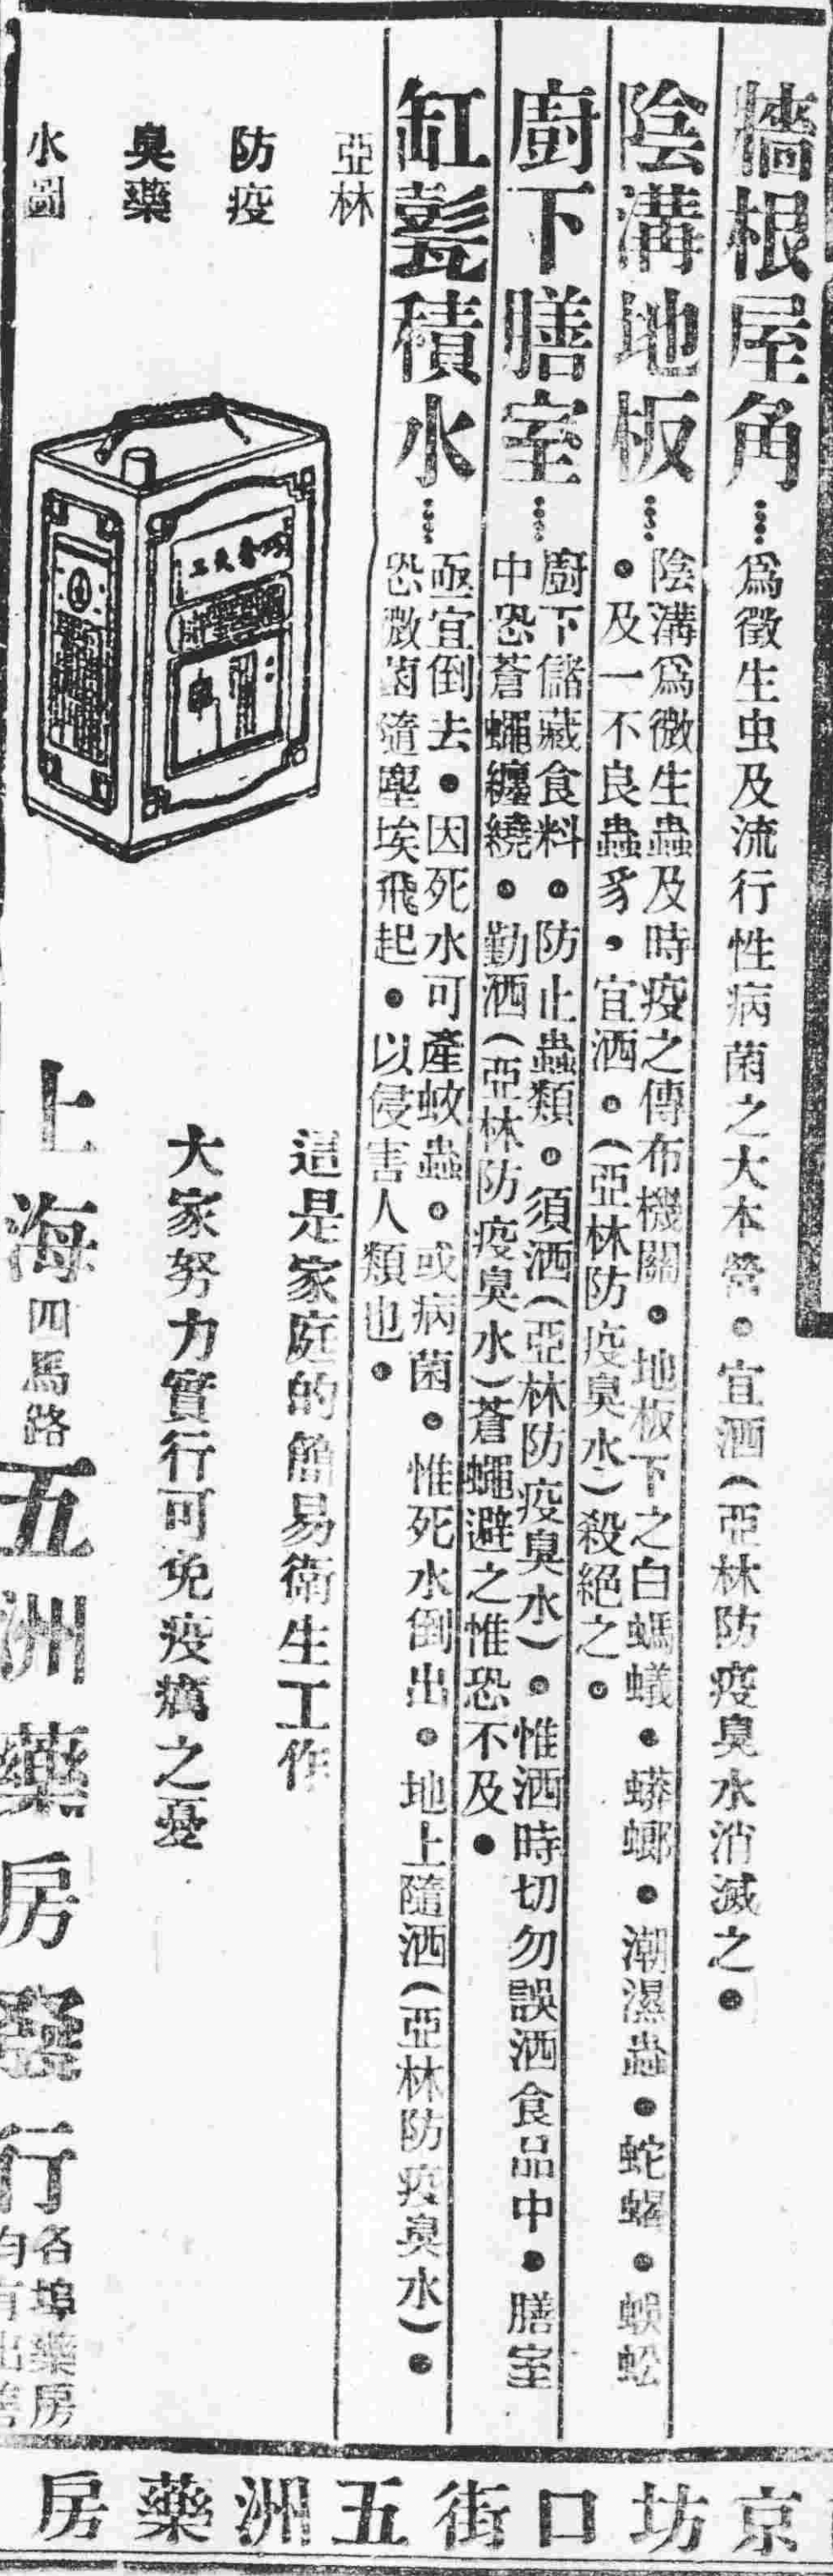 牆根屋角……爲徵生虫及流行性病菌之大本營。宜洒(亞林防疫臭水消滅之。
陰溝地板……陰溝爲微生蟲及時疫之傳布機關。地板下之白螞蟻。蟒螂。潮濕蟲。蛇蝎。蜈蚣
。及一不良蟲豸，宜洒。(亞林防疫臭水)殺絕之。
廚下膳室……廚下儲藏食料。防止蟲類。須洒(亞林防疫臭水)。惟洒時切勿誤洒食品中。膳室
中恐蒼蠅纏繞。勤洒(亞林防疫臭水)蒼蠅避之惟恐不及。
缸甏積水……亟宜倒去。因死水可產蚊蟲。或病菌。惟死水倒出。地上隨洒(亞林防疫臭水)。
恐微菌隨塵埃飛起。以侵害人類也。
亞林
防疫
臭藥
水圖
這是家庭的簡易衛生工作
大家努力實行可免疫癘之憂
上海四馬路五洲藥房發行
各埠藥房
均有出售
京坊口街五洲藥房